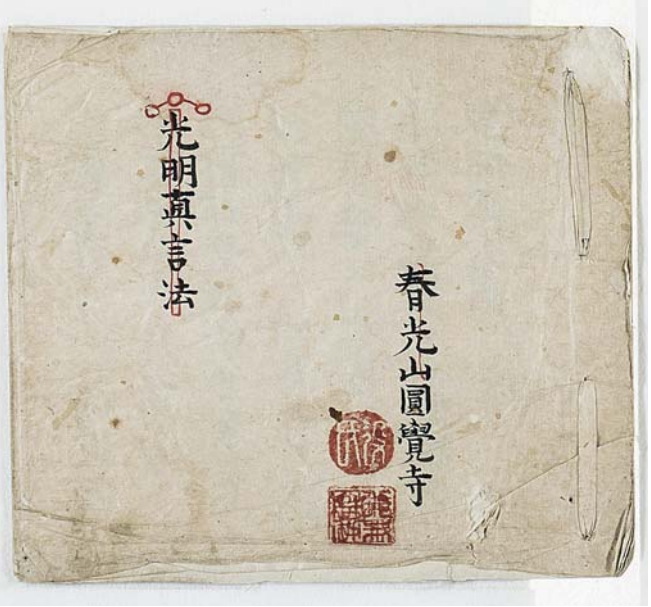 春光山圓覺寺
光明真言法